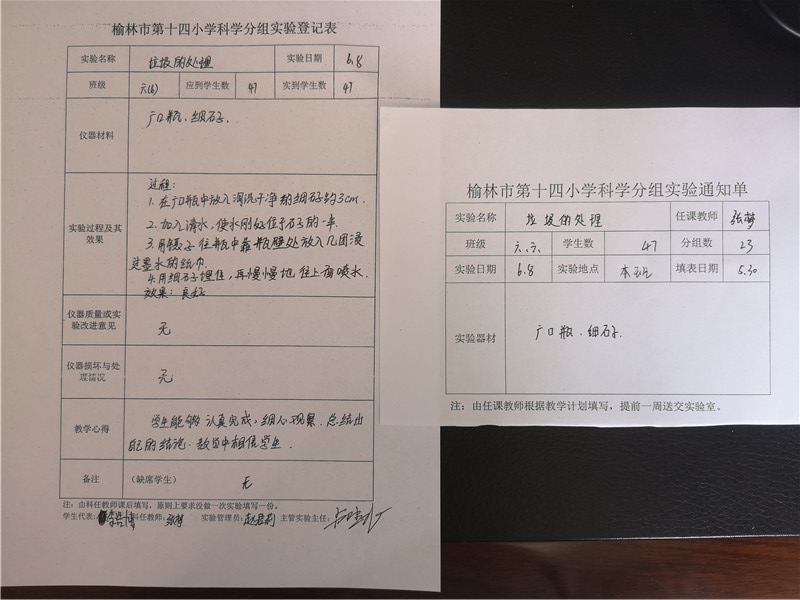 榆林市第十四小学科学分组实验登记表
实验名称 垃圾的处理 实验日期 6.8
班级 六(6) 应到学生数 47 实到学生数 47
仪器材料 广口瓶、细石子.
实验过程及其效果
过程:
1.在广口瓶中放入清洗干净的细石子约3cm.
2.加入清水,使水刚好位于石子的一半.
3.用镊子往瓶中靠瓶壁处放入几团浸
过墨水的纸巾
4.用细石子埋住,再慢慢地往上面喷水.
效果:良好
仪器质量或实验改进意见 无
仪器损坏与处理情况 无
教学心得 学生能够认真完成,细心观察.总结出
自己的结论.教学中相信学生.
备注 (缺席学生) 无
注:由科任教师课后填写,原则上要求没做一次实验填写一份。
学生代表: 科任教师:张梦 实验管理员: 主管实验主任:
榆林市第十四小学科学分组实验通知单
实验名称 垃圾的处理 任课教师 张梦
班级 六.六. 学生数 47 分组数 23
实验日期 6.8 实验地点 本班 填表日期 5.30
实验器材 广口瓶.细石子.
注:由任课教师根据教学计划填写,提前一周送交实验室。